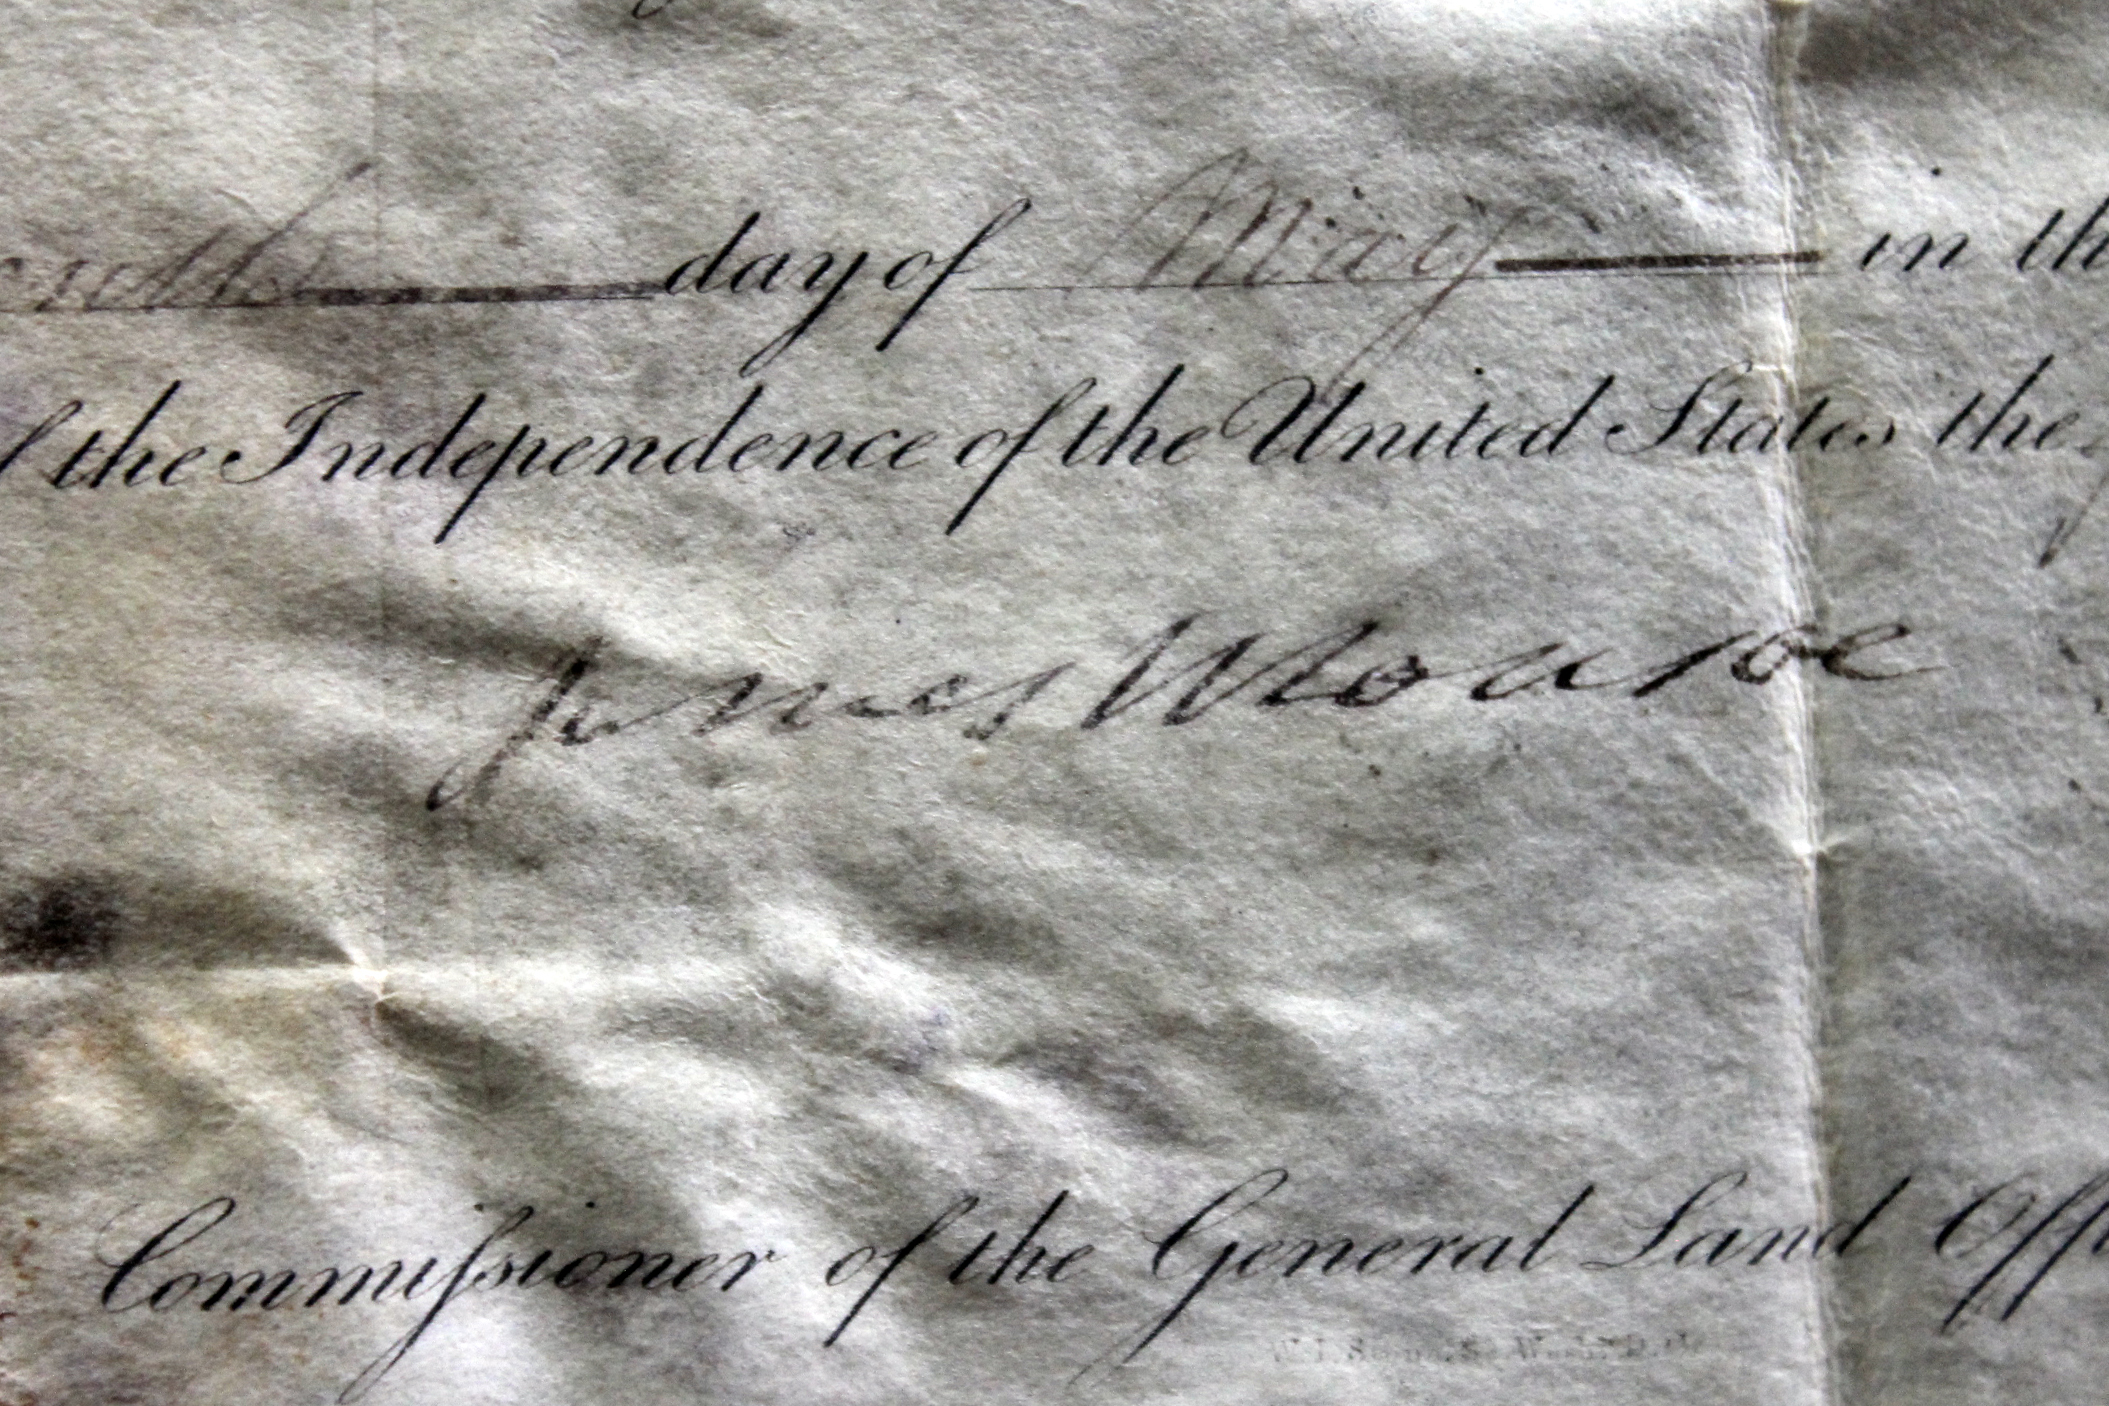 day of May in th
the Independence of the United States the
James Monroe
Commissioner of the General Land Offi